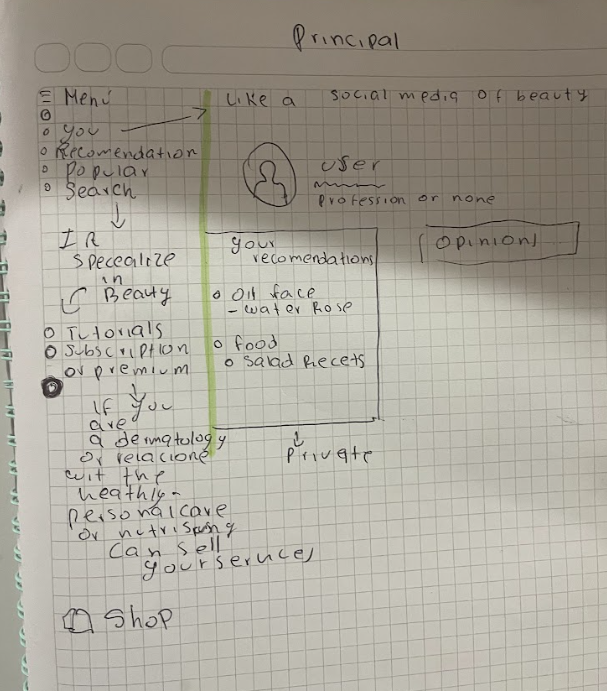 Principal
Menú
you
Recomendation
Popular
Search
IR
specealize
in
Beauty
Tutorials
Subscription
or premium
If you
are
a dermatology
or relacione
wit the
heathly-
personal care
or
can sell
your services
Shop
Like a social media of beauty
user
Profession or none
your
recomendations
Oil face
- water Rose
food
Salad Recets
Private
Opinions